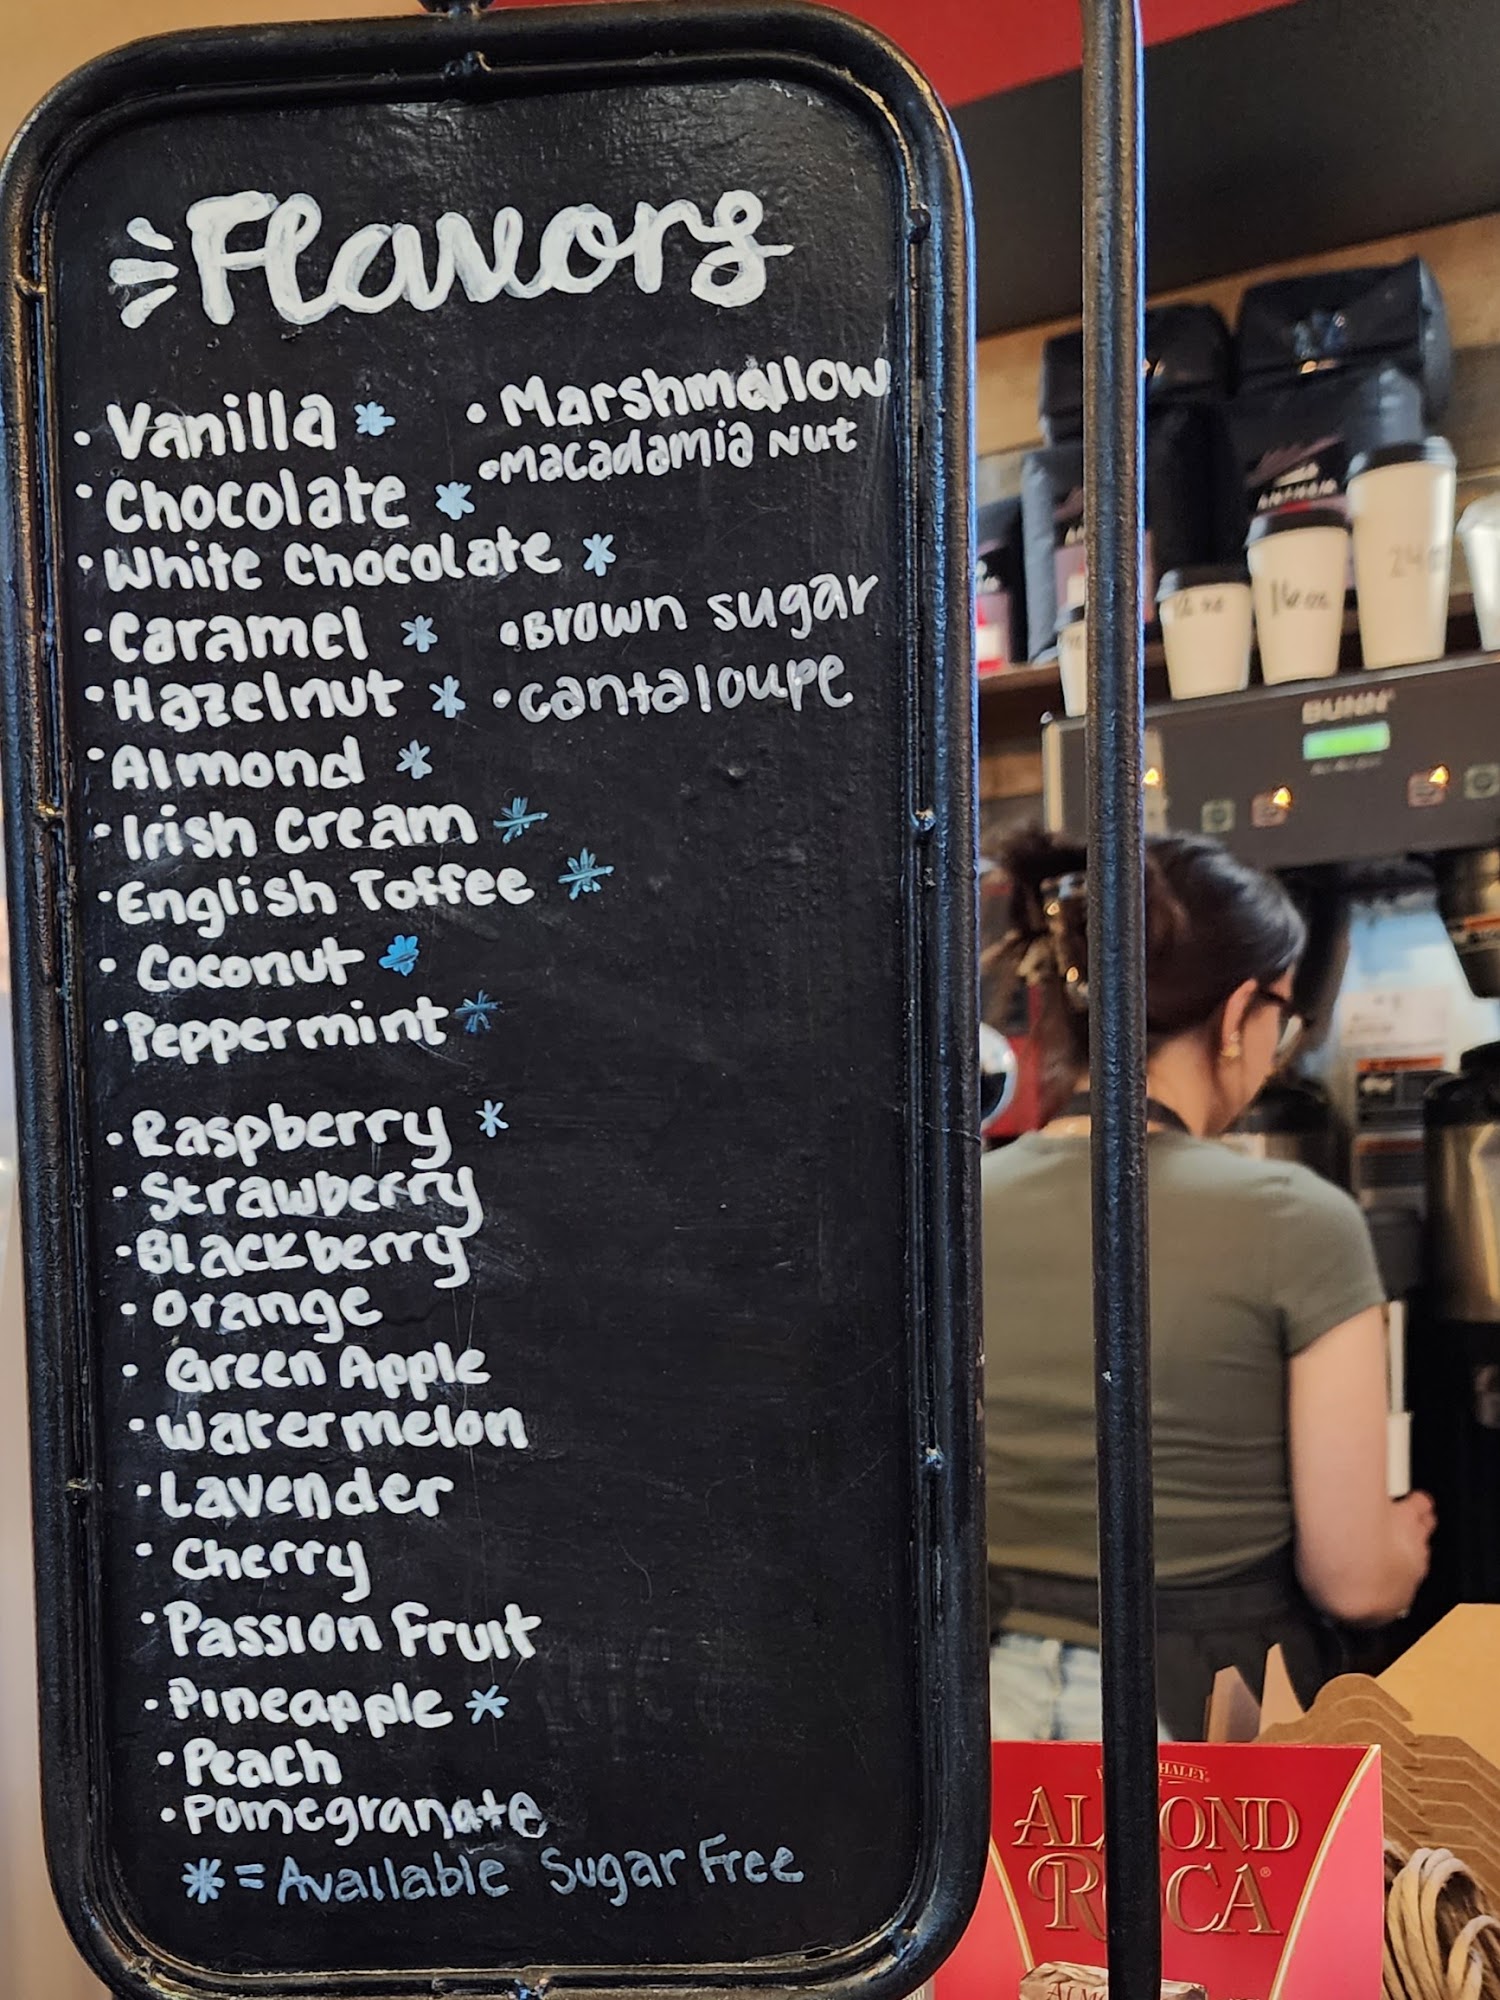 Flavors
· Vanilla *
· Chocolate *
· White Chocolate *
· Caramel *
· Hazelnut *
· Almond *
· Irish Cream *
· English Toffee *
· Coconut *
· Peppermint *
· Raspberry *
· Strawberry
· Blackberry
· Orange
· Green Apple
· Watermelon
· Lavender
· Cherry
· Passion Fruit
· Pineapple *
· Peach
· Pomegranate
* = Available Sugar Free
· Marshmallow
· Macadamia Nut
· Brown sugar
· cantaloupe
12 oz
16 oz
24 oz
BUNN
HALEY
ALMOND
ROCA